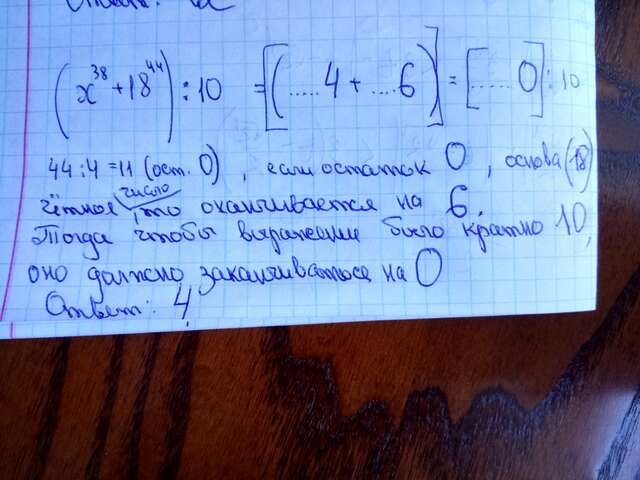 (x³⁸ + 18⁴⁴) : 10 = [(.....4 + ....6)] = [.....0] : 10
44 : 4 = 11 (ост. 0), если остаток 0, основа (18)
чётное число, то оканчивается на 6.
Тогда чтобы выражение было кратно 10,
оно должно заканчиваться на 0
Ответ: 4